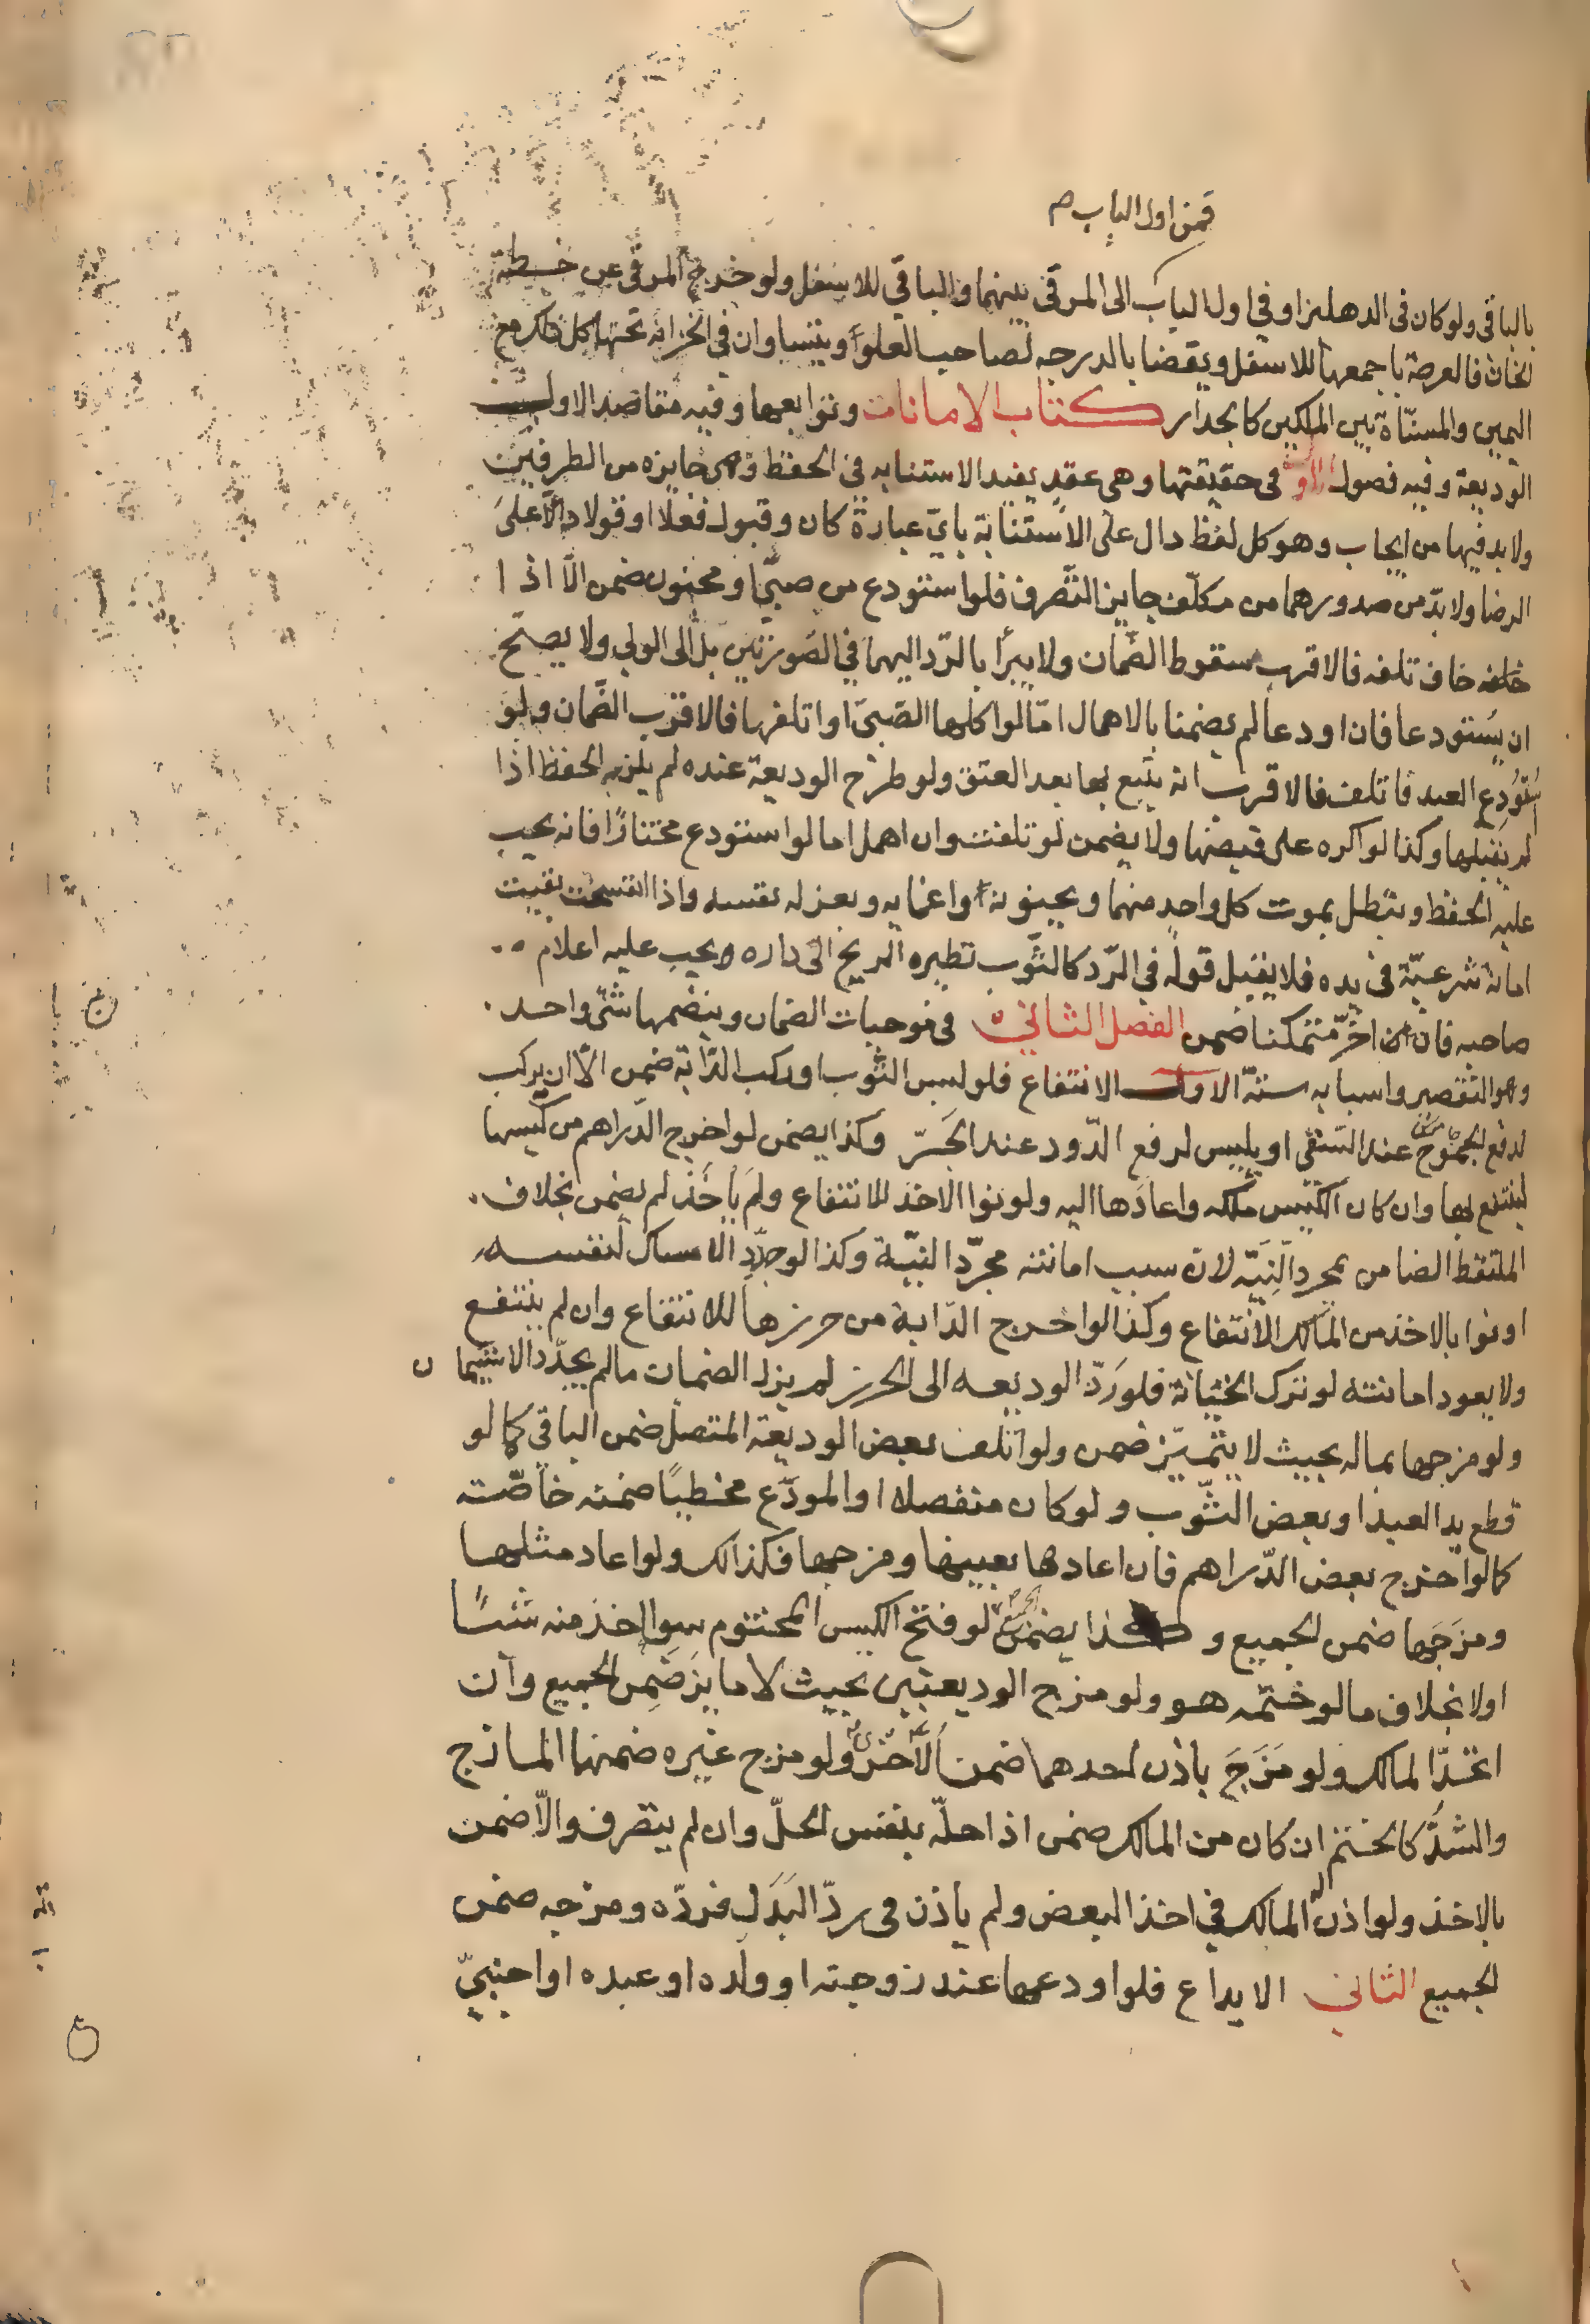 فمن اول الباب م
بالباقي ولو كان في الدهليز او في اول الباب الى المرقى بينهما والباقي للاسفل ولو خرج المرقى عن خطة
الخان فالعرصة باجمعها للاسفل ويقضا بالدرجه لصاحب العلوّ ويتساوان في الخزانه تحتها كل ذلك مع
اليمين والمسنّاة بين الملكين كالجدار كتاب الامانات وتوابعها وفيه مقاصد الاول
الوديعة وفيه فصول الاوّل في حقيقتها وهي عقد يفيد الاستنابه في الحفظ وهى جايزه من الطرفين
ولا بد فيها من ايجاب وهو كل لفظ دال على الاستنابة بايّ عبارة كان وقبول فعلا او قولا دالّا على
الرضا ولا بدّ من صدورهما من مكلّف جايز التصّرف فلو استودع من صبيّ او مجنون ضمن الّا اذا
خاف تلفه فالاقرب سقوط الضّمان ولا يبرأ بالرّد اليهما في الصّورتين بل الى الولي ولا يصحّ
ان يستودعا فان اودعا لم يضمنا بالاهمال امّا لو اكلها الصّبيّ او اتلفها فالاقرب الضّمان ولو
استُودِع العبد فاتلف فالاقرب انه يتبع بها بعد العتق ولو طرح الوديعة عنده لم يلزمه الحفظ اذا
لم يقبلها وكذا لو اكره على قبضها ولا يضمن لو تلفت وان اهمل اما لو استودع مختارًا فانه يجب
عليه الحفظ وتبطل بموت كل واحد منهما وبجنونه واغمايه وبعزله نفسه واذا انفسخت بقيت
امانة شرعيّة في يده فلا يقبل قوله في الرّد كالثّوب تطيره الريح الى داره ويجب عليه اعلام
صاحبه فان اخّر متمكنا ضمن الفصل الثاني في موجبات الضمان وينضمها شئ واحد
وهو التقصير واسبابه ستّة الاول الانتفاع فلو لبس الثّوب او ركب الدّابة ضمن الّا ان يركب
لدفع الجموح عند السّقي او يلبس لرفع الدّود عند الجَرّ وكذا يضمن لو اخرج الدّراهم من كيسها
لينتفع بها وان كان الكيس ملكه واعادها اليه ولو نوا الاخذ للانتفاع ولم يأخذ لم يضمن بخلاف
الملتقط الضامن بمجرد النيّه لان سبب امانته مجرّد النيّة وكذا لو جدّد الامساك لنفسه
او نوا بالاخذ من المالك الانتفاع وكذا لو اخرج الدّابة من حرزها للانتفاع وان لم ينتفع
ولا يعود امانته لو ترك الخيانة فلو رَدّ الوديعه الى الحرز لم يزل الضمان ما لم يجدّد الاستيمان
ولو مزجها بماله بحيث لا يتميّز ضمن ولو اتلف بعض الوديعة المتصل ضمن الباقي كما لو
قطع يد العبد او بعض الثّوب ولو كان منفصلا او المودَع مخطيًا ضمنه خاصّته
كما لو اخرج بعض الدّراهم فان اعادها بعينها ومزجها فكذالك ولو اعاد مثلها
ومزَجَها ضمن الجميع وكذا يضمن الجميع لو فتح الكيس المختوم سوا اخذ منه شئًا
اولا بخلاف ما لو ختمه هو ولو مزج الوديعتين بحيث لا مايزَ ضمن الجميع وان
اتحدّ المالك ولو مَزَجَ باذن احدهما ضمن الآخر ولو مزج غيره ضمنها المازج
والشدّ كالختم ان كان من المالك ضمن اذا حلّه بنفس الحلّ وان لم يتصرف والّا ضمن
بالاخذ ولو اذن المالك في اخذ البعض ولم ياذن في ردّ البَدَل فردّه ومزجه ضمن
الجميع الثاني الايداع فلو اودعها عند زوجته او ولده او عبده او اجنبيّ